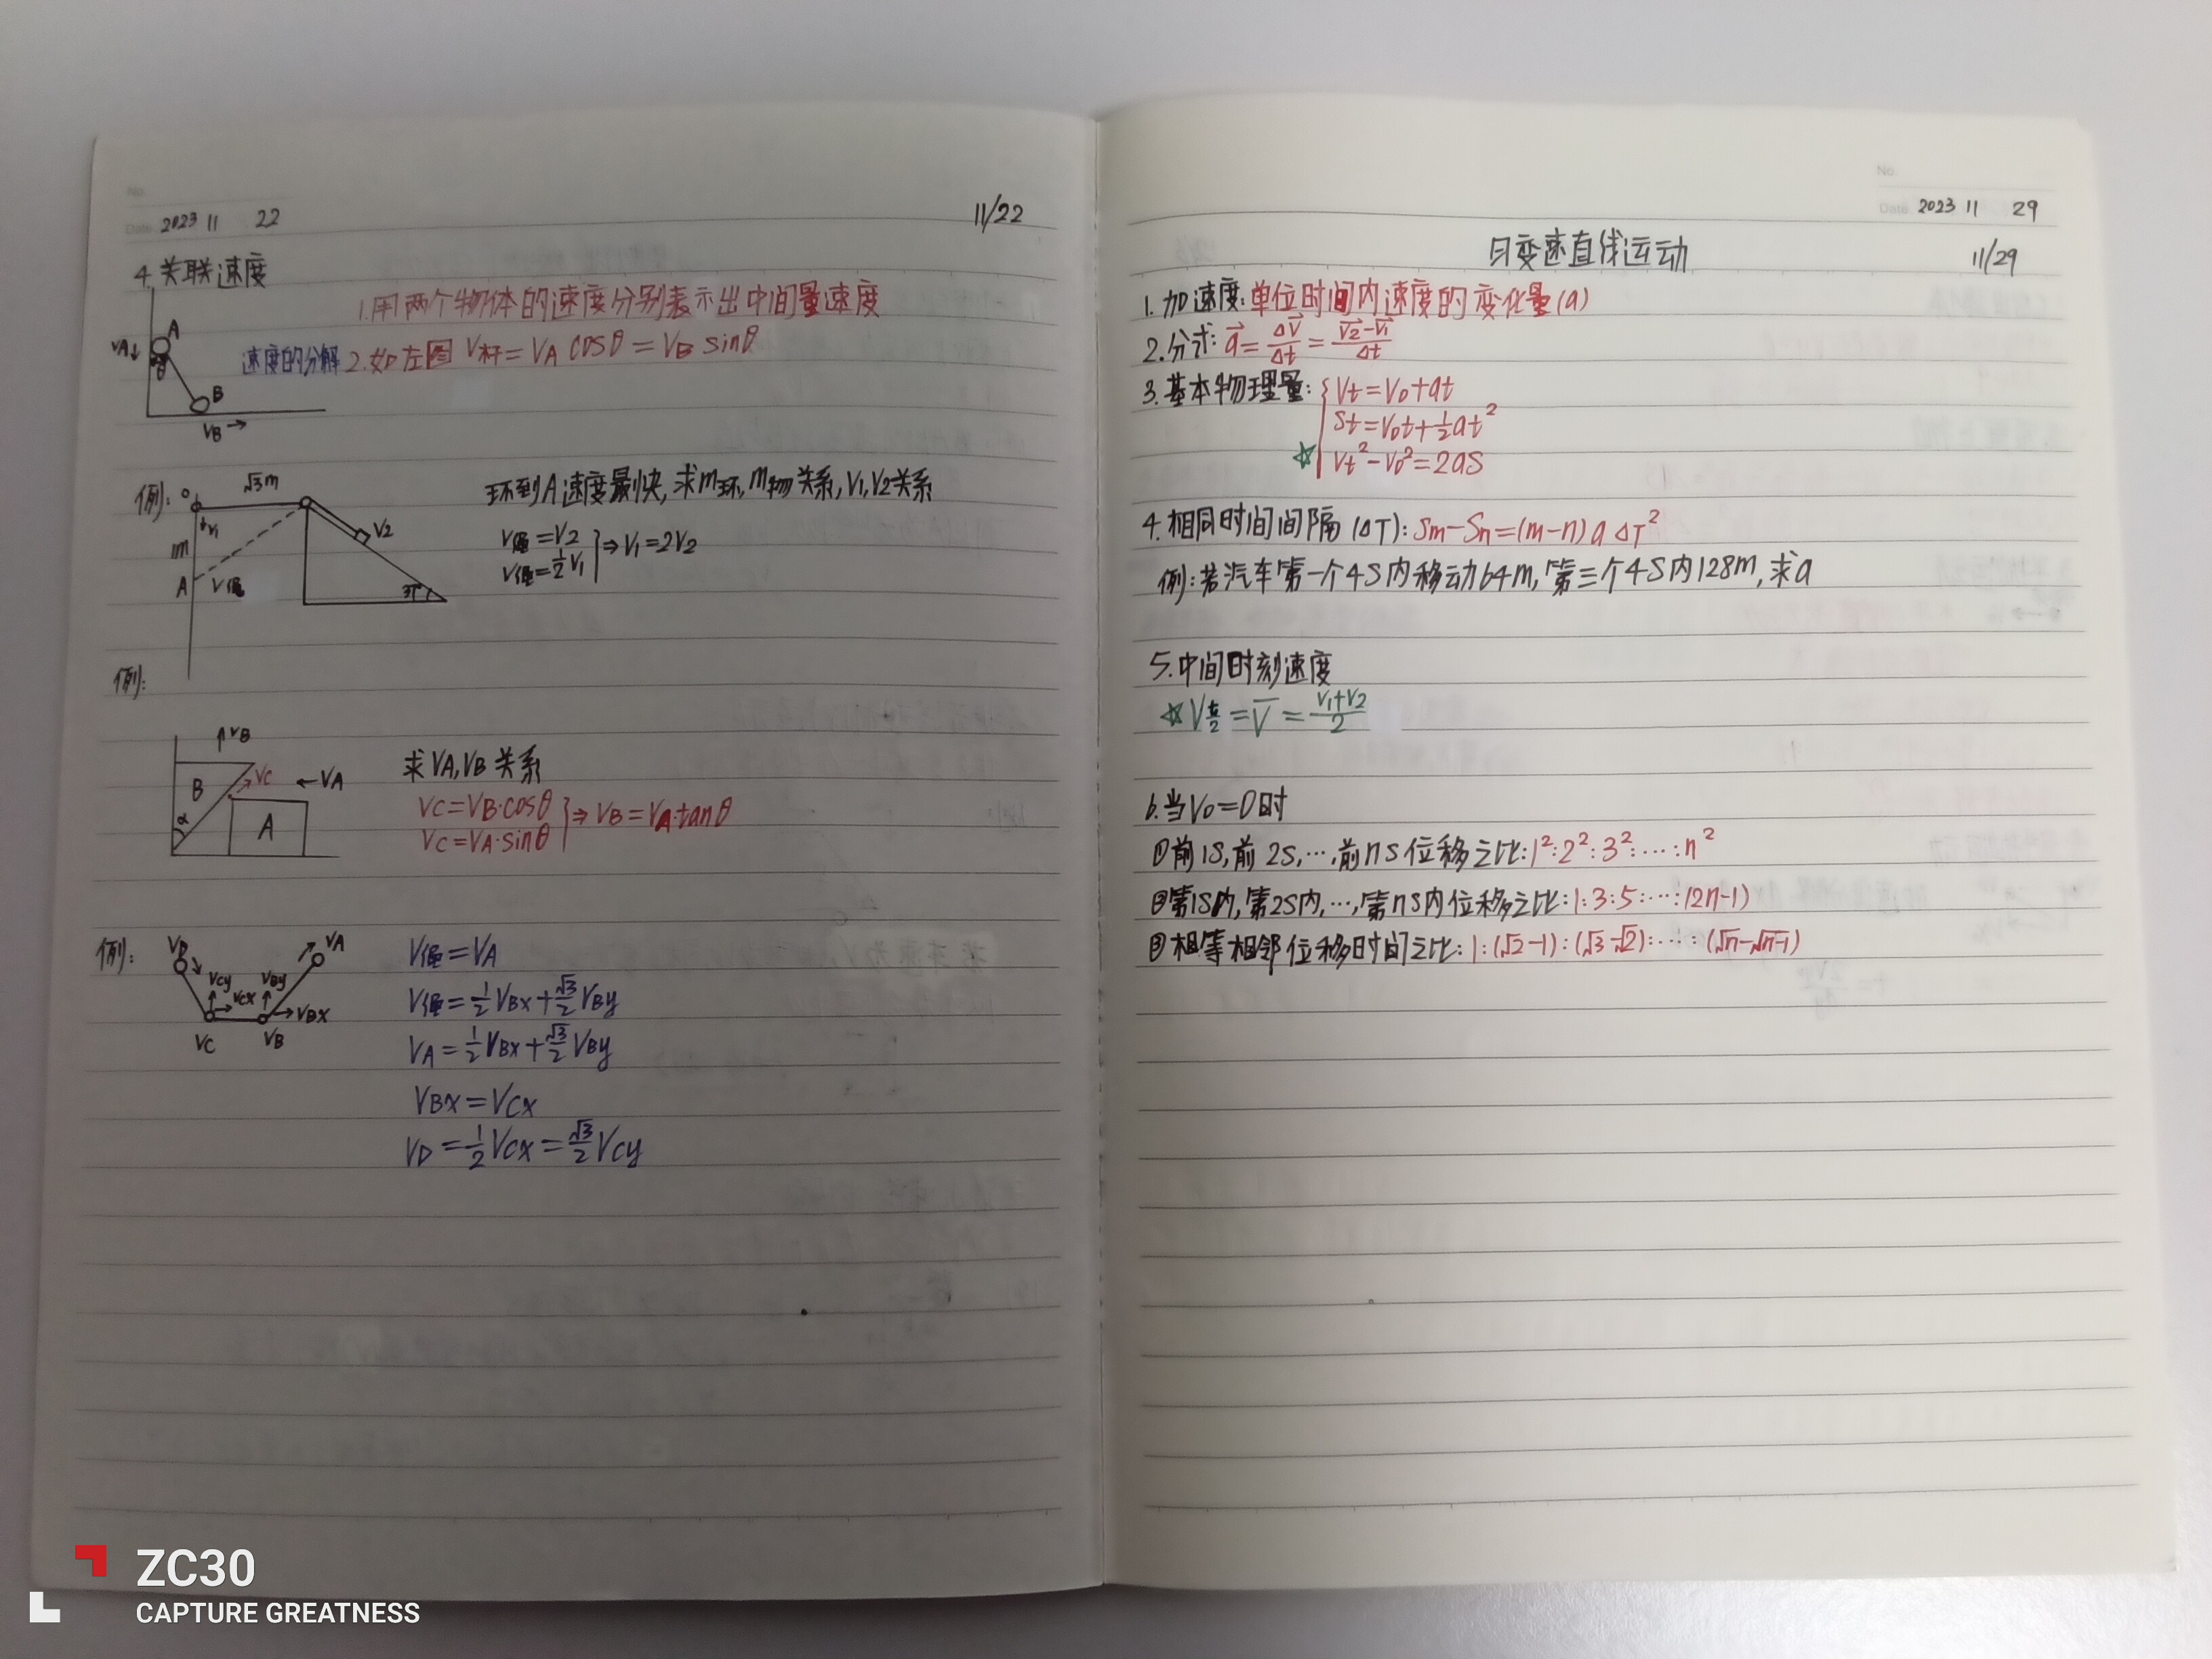 No.
Date 2023 11 22
11/22
4.关联速度
1.用两个物体的速度分别表示出中间量速度
速度的分解 2.如左图 V杆=VA cosθ=VB sinθ
A
VA↓
θ
B
VB→
例:
√3m
环到A速度最快,求m环,m物关系,V1,V2关系
↓V1
V2
V绳=V2
V绳=½V1
⇒V1=2V2
1m
A
V绳
37°
例:
↑VB
B
VC
←VA
α
A
求VA,VB关系
VC=VB·cosθ
VC=VA·sinθ
⇒VB=VA·tanθ
例:
VD
VA
VCy
VCx
VBy
VBX
VC
VB
V绳=VA
V绳=½VBx+√3/2VBy
VA=½VBx+√3/2VBy
VBx=VCx
VD=½VCx=√3/2VCy
No.
Date 2023 11 29
匀变速直线运动
11/29
1.加速度:单位时间内速度的变化量(a)
2.公式:a⃗=ΔV⃗/Δt=(V2⃗-V1⃗)/Δt
3.基本物理量:{Vt=V0+at
St=V0t+½at²
☆ Vt²-V0²=2aS
4.相同时间间隔(ΔT):Sm-Sn=(m-n)aΔT²
例:若汽车第一个4S内移动64m,第三个4S内128m,求a
5.中间时刻速度
☆Vt/2=V̄=(V1+V2)/2
6.当V0=0时
①前1S,前2S,…,前nS位移之比:1²:2²:3²:…:n²
②第1S内,第2S内,…,第nS内位移之比:1:3:5:…:(2n-1)
③相等相邻位移时间之比:1:(√2-1):(√3-√2):…:(√n-√n-1)
ZC30
CAPTURE GREATNESS